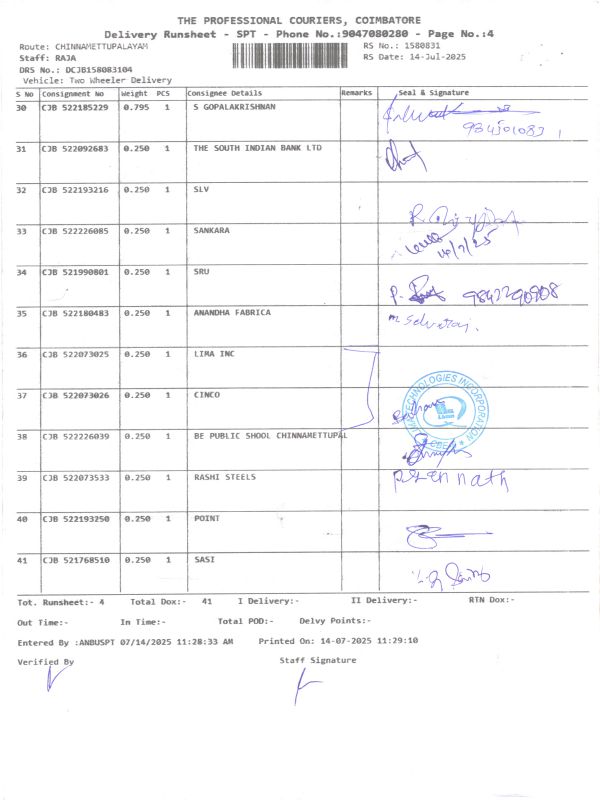 THE PROFESSIONAL COURIERS, COIMBATORE
Delivery Runsheet - SPT - Phone No.:9047080280 - Page No.:4
Route: CHINNAMETTUPALAYAM RS No.: 1580831
Staff: RAJA RS Date: 14-Jul-2025
DRS No.: DCJB158083104
Vehicle: Two Wheeler Delivery
S No Consignment No Weight PCS Consignee Details Remarks Seal & Signature
30 CJB 522185229 0.795 1 S GOPALAKRISHNAN
31 CJB 522092683 0.250 1 THE SOUTH INDIAN BANK LTD
32 CJB 522193216 0.250 1 SLV
33 CJB 522226085 0.250 1 SANKARA 14/7/25
34 CJB 521990801 0.250 1 SRU P. 9842290908
35 CJB 522180483 0.250 1 ANANDHA FABRICA m. Selvaraj.
36 CJB 522073025 0.250 1 LIMA INC
TECHNOLOGIES INCORPORATION
37 CJB 522073026 0.250 1 CINCO
38 CJB 522226039 0.250 1 BE PUBLIC SHOOL CHINNAMETTUPAL
39 CJB 522073533 0.250 1 RASHI STEELS
40 CJB 522193250 0.250 1 POINT
41 CJB 521768510 0.250 1 SASI
Tot. Runsheet:- 4 Total Dox:- 41 I Delivery:- II Delivery:- RTN Dox:-
Out Time:- In Time:- Total POD:- Delvy Points:-
Entered By :ANBUSPT 07/14/2025 11:28:33 AM Printed On: 14-07-2025 11:29:10
Verified By Staff Signature